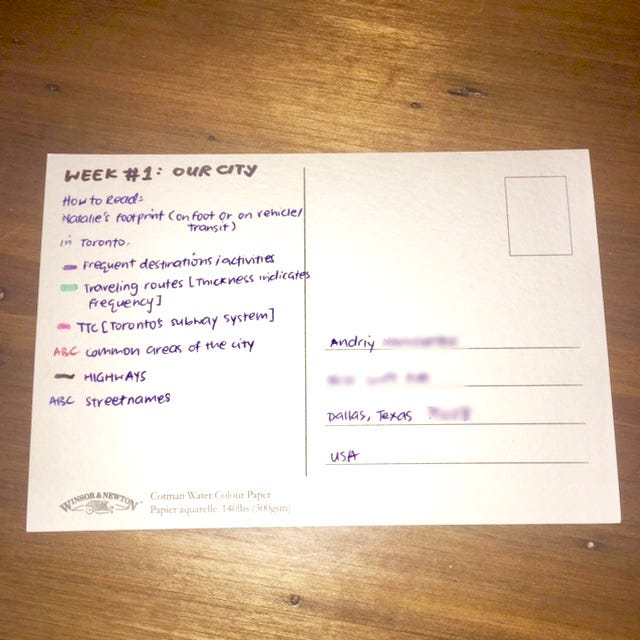 WEEK #1: OUR CITY
How to Read:
Natalie's footprint (on foot or on vehicle/
transit)
in Toronto.
Frequent destinations/activities
Traveling routes [Thickness indicates
frequency]
TTC [Toronto's subway system]
ABC common areas of the city
HIGHWAYS
ABC street names
Andriy
Dallas, Texas
USA
WINSOR & NEWTON
Cotman Water Colour Paper
Papier aquarelle. 140lbs (300gsm)